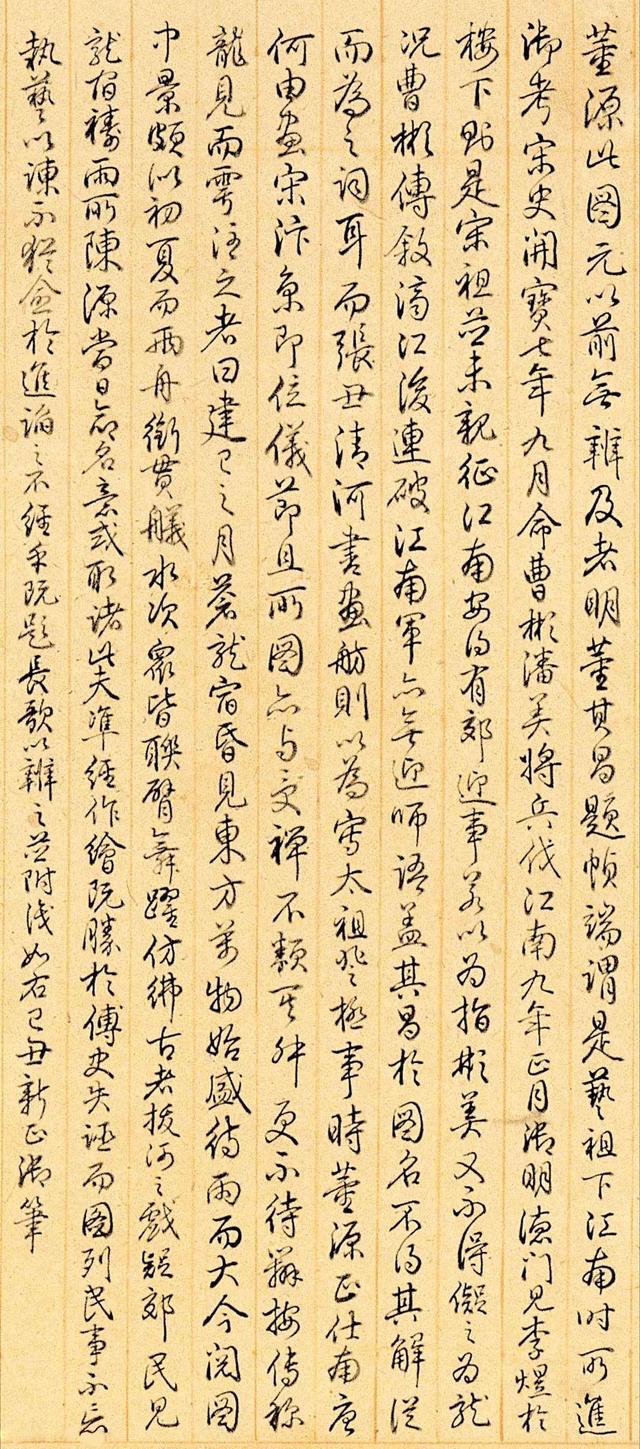 董源此图元以前无辨及者明董其昌题帧端谓是艺祖下江南时所进
御考宋史開寶七年九月命曹彬潘美将兵伐江南九年正月御明德门見李煜於
楼下则是宋祖并未親征江南安得有郊迎事若以为指彬美又不得儗之为龙
况曹彬傳叙濟江後連破江南軍亦无迎師語盖其昌於图名不得其解從
而為之詞耳而張丑清河書画舫則以為寫太祖登極事時董源正仕南唐
何由画宋汴京即位儀節且所图亦与受禅不類其舛更不待辨按傳称
龍見而雩注之者曰建巳之月蒼龙宿昏見東方萬物始盛待雨而大今阅图
中景頗似初夏而兩舟銜貫艤水次衆皆聯臂舞躍仿彿古者拔河之戲疑郊民見
龙宿禱雨所陳源當日命名意或取諸此夫準經作繪既勝於傅史失诬而图列民事不忘
執藝以諫不猶愈於進諂之不經乎既題長歌以辨之并附識如右己丑新正御筆